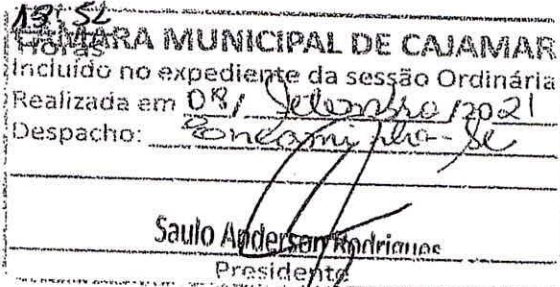 13:52
Horas
CÂMARA MUNICIPAL DE CAJAMAR
Incluído no expediente da sessão Ordinária
Realizada em 08/ Setembro /2021
Despacho: Encaminha-se
Saulo Anderson Rodrigues
Presidente